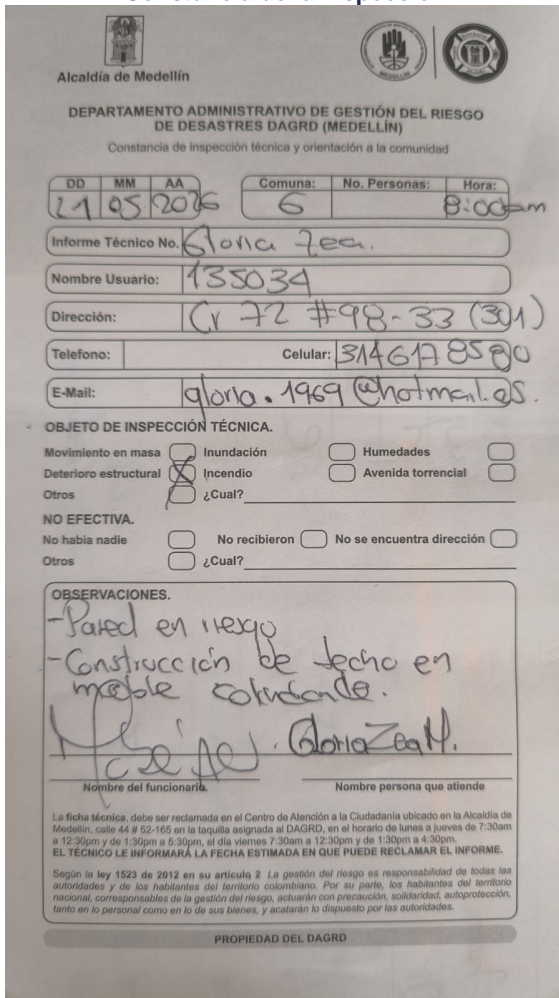 Alcaldía de Medellín
DEPARTAMENTO ADMINISTRATIVO DE GESTIÓN DEL RIESGO
DE DESASTRES DAGRD (MEDELLÍN)
Constancia de inspección técnica y orientación a la comunidad
DD MM AA Comuna: No. Personas: Hora:
21 05 2026 6 8:00am
Informe Técnico No. Gloria Zea.
Nombre Usuario: 135034
Dirección: Cr 72 #98-33 (301)
Telefono: Celular: 3146178580
E-Mail: gloria.1969@hotmail.es.
OBJETO DE INSPECCIÓN TÉCNICA.
Movimiento en masa Inundación Humedades
Deterioro estructural X Incendio Avenida torrencial
Otros ¿Cual?
NO EFECTIVA.
No había nadie No recibieron No se encuentra dirección
Otros ¿Cual?
OBSERVACIONES.
-Pared en riesgo
-Construcción de techo en
Gloria Zea M.
Nombre del funcionario. Nombre persona que atiende
La ficha técnica, debe ser reclamada en el Centro de Atención a la Ciudadanía ubicado en la Alcaldía de
Medellín, calle 44 # 52-165 en la taquilla asignada al DAGRD, en el horario de lunes a jueves de 7:30am
a 12:30pm y de 1:30pm a 5:30pm, el día viernes 7:30am a 12:30pm y de 1:30pm a 4:30pm.
EL TÉCNICO LE INFORMARÁ LA FECHA ESTIMADA EN QUE PUEDE RECLAMAR EL INFORME.
Según la ley 1523 de 2012 en su articulo 2 La gestión del riesgo es responsabilidad de todas las
autoridades y de los habitantes del territorio colombiano. Por su parte, los habitantes del territorio
nacional, corresponsables de la gestión del riesgo, actuarán con precaución, solidaridad, autoprotección,
tanto en lo personal como en lo de sus bienes, y acatarán lo dispuesto por las autoridades.
PROPIEDAD DEL DAGRD